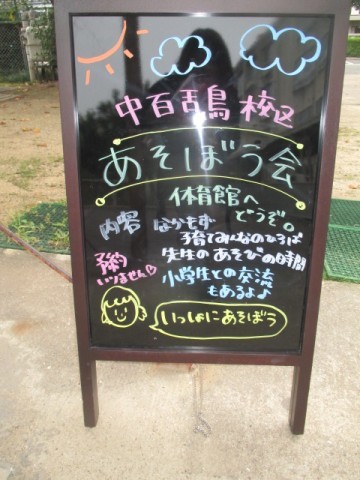 中百舌鳥 校区
あそぼう会
体育館へ
どうぞ。
内容 なかもず
子育てみんなのひろば
先生のあそびの時間
予約
いりません♡
小学生との交流
もあるよ♪
いっしょにあそぼう